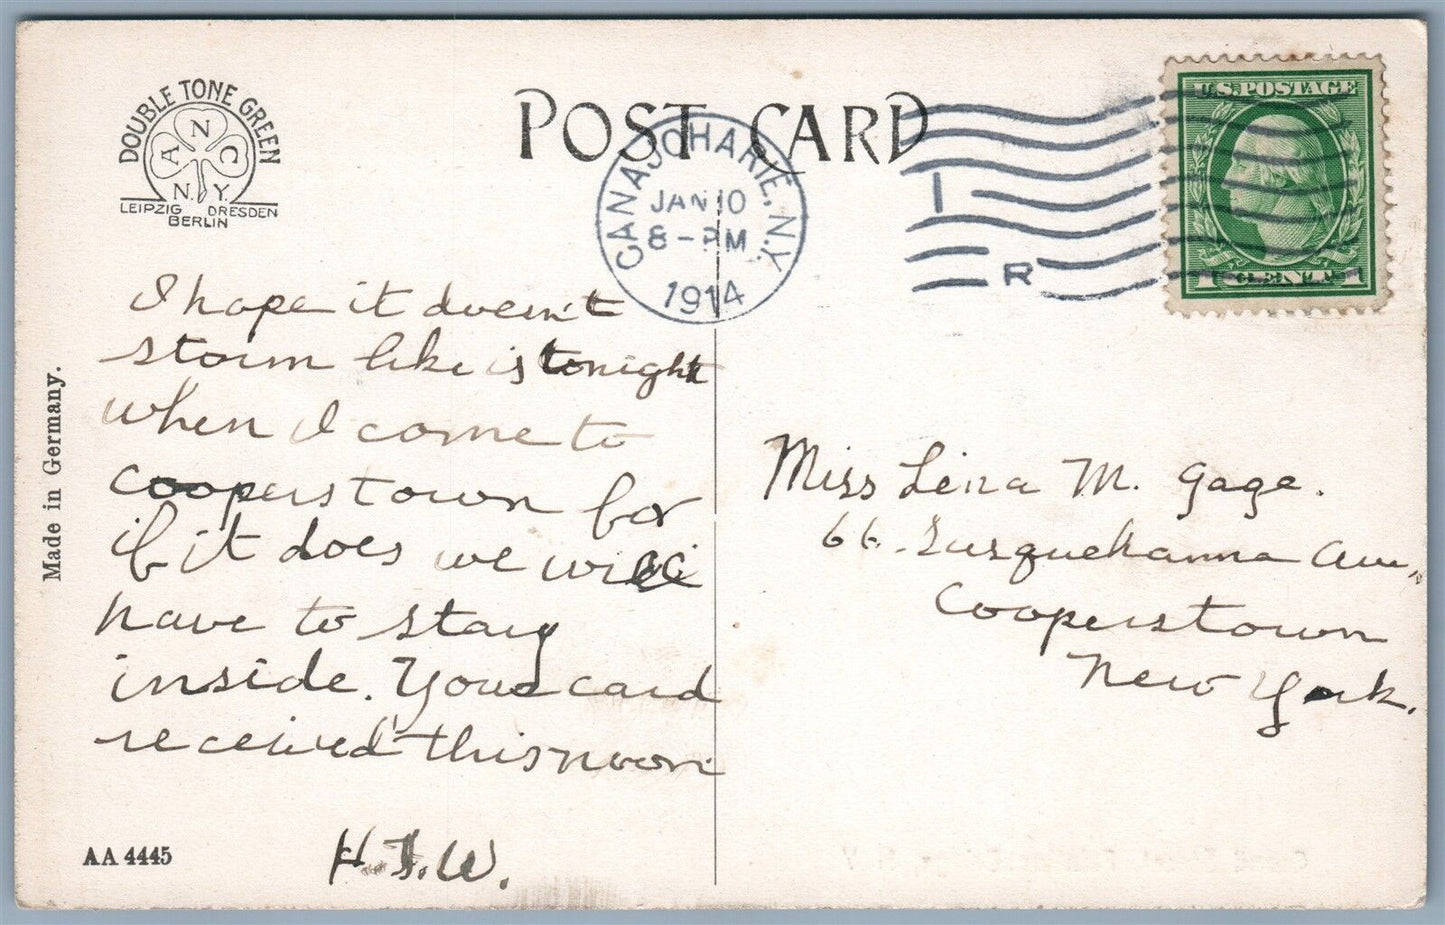 DOUBLE TONE GREEN
A N C
N.Y.
LEIPZIG DRESDEN
BERLIN
POST CARD
CANAJOHARIE, N.Y.
JAN 10
8-PM
1914
I
R
U.S. POSTAGE
1 CENT 1
Made in Germany.
I hope it doesn't
storm like is tonight
when I come to
Cooperstown for
if it does we will
have to stay
inside. Your card
received this noon
H.F.W.
AA 4445
Miss Lena M. Gage.
66. Susquehanna Ave.,
Cooperstown
New York.